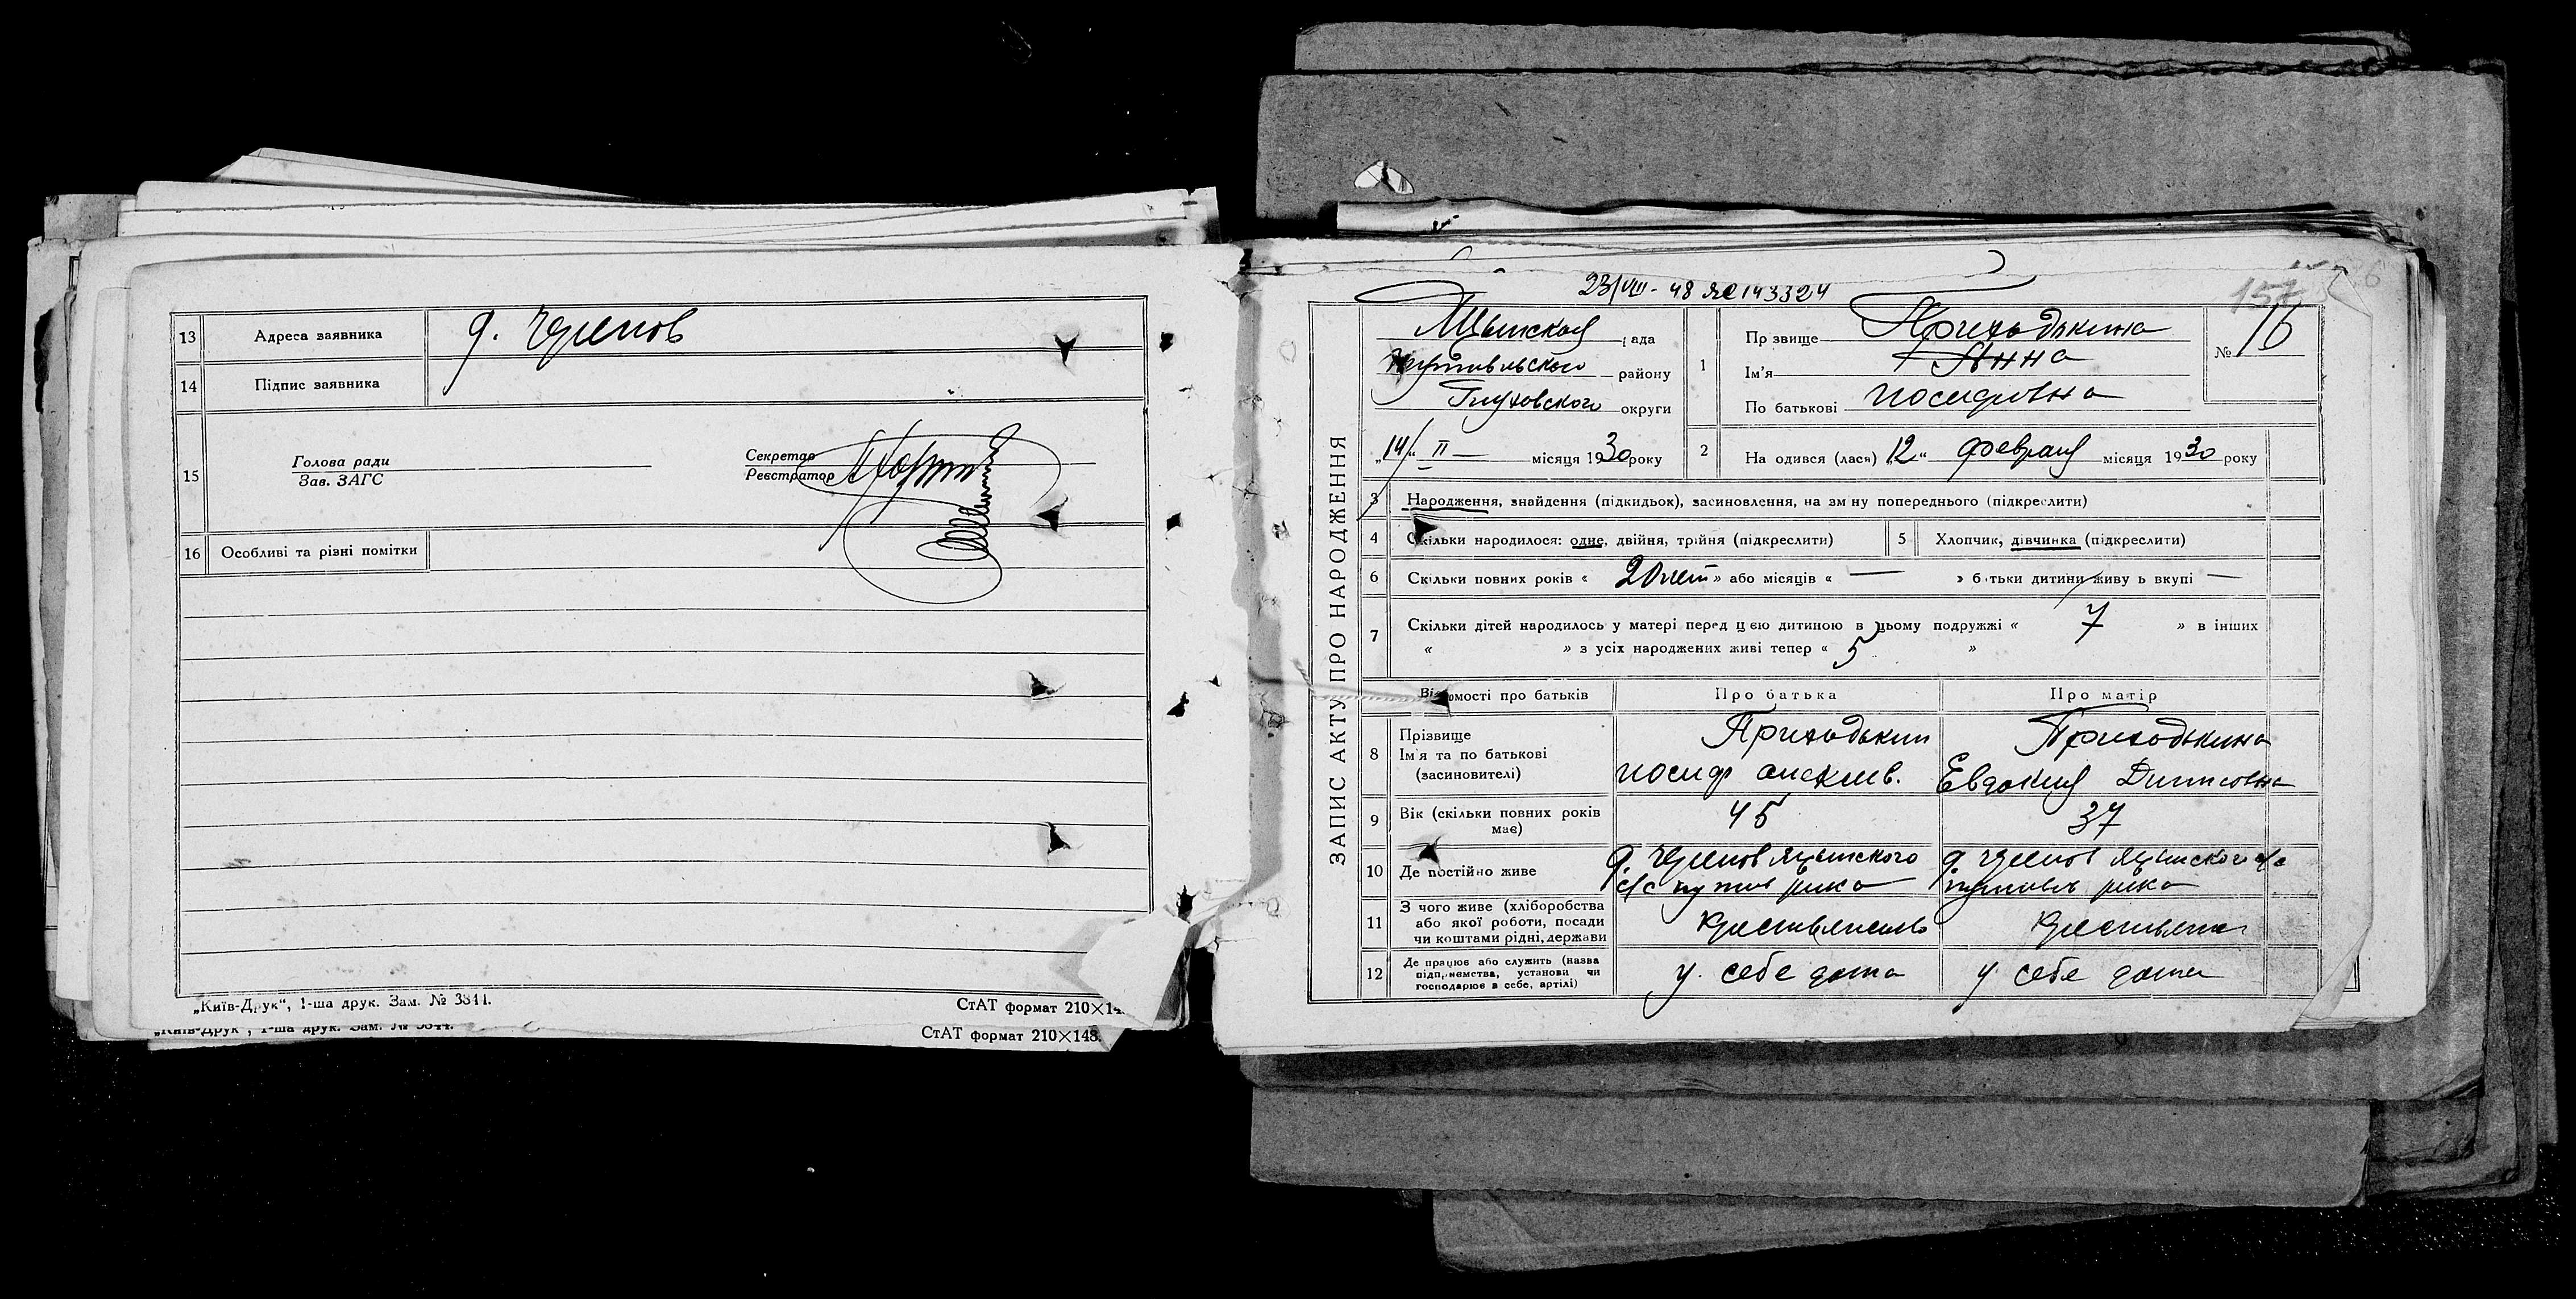 13 Адреса заявника д. Черепов
14 Підпис заявника
15 Голова ради
Зав. ЗАГС
Секретар
Реєстратор
16 Особливі та різні помітки
„Київ-Друк“, 1-ша друк. Зам. № 3344.
СтАТ формат 210×14
„Київ-Друк“, 1-ша друк. Зам. № 3344.
СтАТ формат 210×148.
23/VIII-48 ЯС 143324
157
ЗАПИС АКТУ ПРО НАРОДЖЕННЯ
рада
Путивльского району
Глуховского округи
„14“ II — місяця 1930 року
1 Прізвище Приходькина
Ім'я Анна
По батькові Иосифовна
№ 16
2 На одився (лася) „12“ февраля місяця 1930 року
3 Народження, знайдення (підкидьок), засиновлення, на зміну попереднього (підкреслити)
4 Скільки народилося: одне, двійня, трійня (підкреслити)
5 Хлопчик, дівчинка (підкреслити)
6 Скільки повних років « 20 лет » або місяців « — » батьки дитини живуть вкупі —
7 Скільки дітей народилось у матері перед цією дитиною в цьому подружжі « 7 » в інших
« » з усіх народжених живі тепер « 5 »
Відомості про батьків
Про батька
Про матір
8 Прізвище
Ім'я та по батькові
(засиновителі)
Приходькин
Иосиф
Приходькина
Евдокия
9 Вік (скільки повних років
має)
45
37
10 Де постійно живе
д. Черепов Яцынского
с/с путив района
д. Черепов Яцынского с/с
путивль района
11 З чого живе (хліборобства
або якої роботи, посади
чи коштами рідні, держави
12 Де працює або служить (назва
підприємства, установи чи
господарює в себе, артілі)
у себе дома
у себе дома